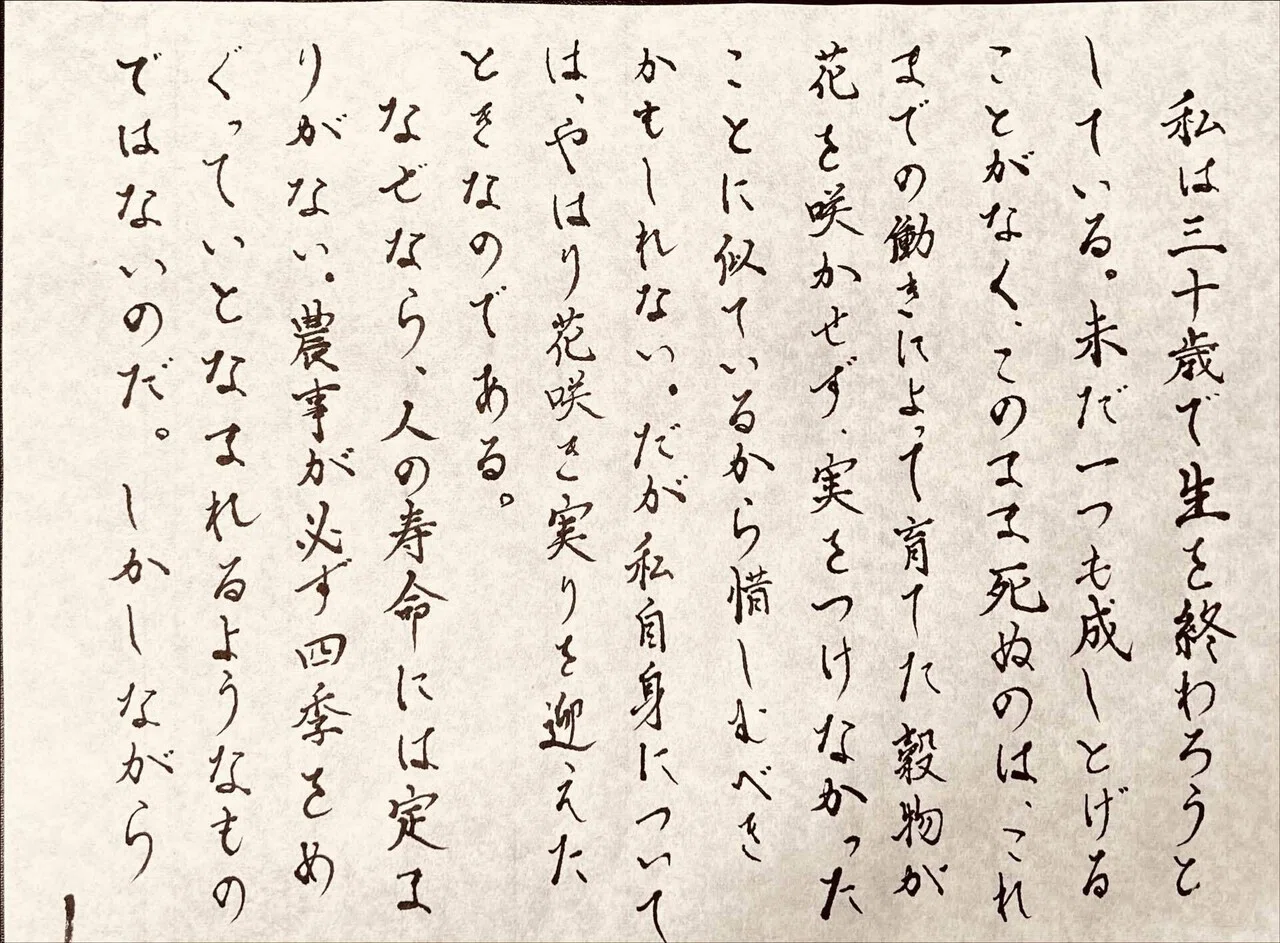 私は三十歳で生を終わろうと
している。未だ一つも成しとげる
ことがなく、このまま死ぬのは、これ
までの働きによって育てた穀物が
花を咲かせず、実をつけなかった
ことに似ているから惜しむべき
かもしれない。だが私自身について
は、やはり花咲き実りを迎えた
ときなのである。
なぜなら、人の寿命には定ま
りがない。農事が必ず四季をめ
ぐっていとなまれるようなもの
ではないのだ。しかしながら